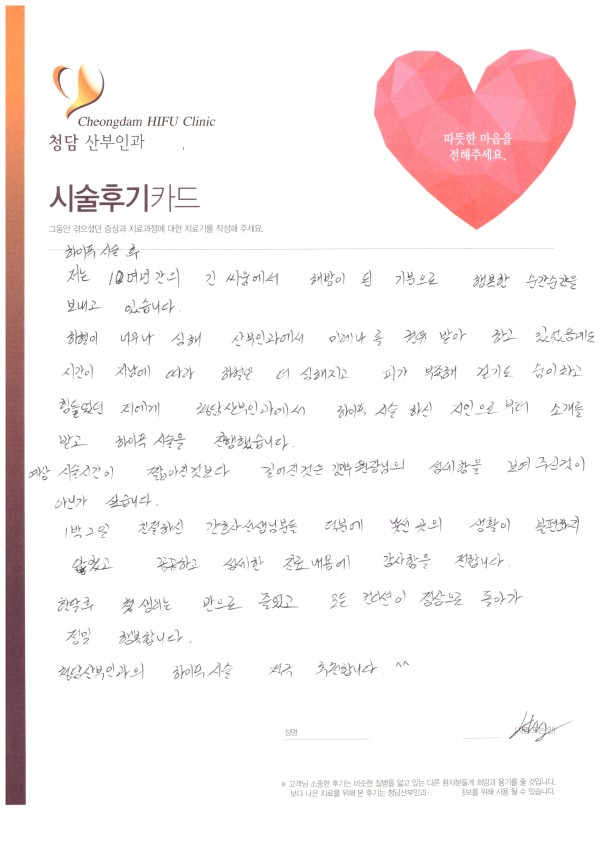 Cheongdam HIFU Clinic
청담 산부인과
따뜻한 마음을
전해주세요.
시술후기카드
그동안 겪으셨던 증상과 치료과정에 대한 치료기를 작성해 주세요.
하이푸 시술 후
저는 10여년간의 긴 싸움에서 해방이 된 기분으로 행복한 순간순간을
보내고 있습니다.
하혈이 너무나 심해 산부인과에서 미레나를 권유 받아 하고 있었음에도
시간이 지남에 따라 하혈은 더 심해지고 피가 부족해 걷기도 숨이차고
힘들었던 저에게 청담산부인과에서 하이푸 시술 하신 지인으로부터 소개를
받고 하이푸 시술을 진행했습니다.
예상 시술시간이 짧아진것보다 길어진것은 원장님의 섬세함을 보여주신것이
아닌가 싶습니다.
1박2일 친절하신 간호사선생님분들 덕분에 낯선 곳의 생활이 불편하지
않았고 꼼꼼하고 섬세한 진료내용에 감사함을 전합니다.
한달후 생리는 반으로 줄었고 모든 컨디션이 정상으로 돌아가
정말 행복합니다.
청담산부인과의 하이푸 시술 적극 추천합니다. ^^
성명
※ 고객님 소중한 후기는 비슷한 질병을 앓고 있는 다른 환자분들께 희망과 용기를 줄 것입니다.
보다 나은 치료를 위해 본 후기는 청담산부인과· 홍보를 위해 사용 될 수 있습니다.